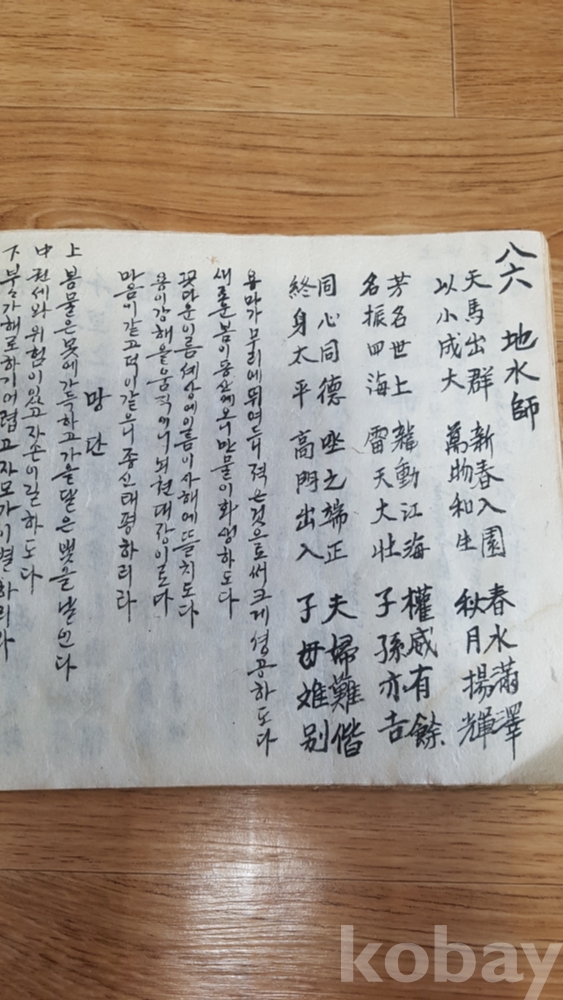 八六 地水師
天馬出群 新春入園 春水滿澤
以小成大 萬物和生 秋月揚輝
芳名世上 龍動江海 權威有餘
名振四海 雷天大壯 子孫亦吉
同心同德 坐之端正 夫婦難偕
終身太平 高門出入 子母难别
용마가무리에뛰여드니적은것으로써크게성공하도다
새로운봄이동산에오니만물이화생하도다
꽃다운이름세상에이름이사해에뜰치도다
용이강해을움직이니뇌천대장이로다
마음이같고덕이같으니종신태평하리라
망단
上 봄물은못에가득하고가을달은빛을날인다
中 권세와위험이있고자손이길하도다
下 부부가해로하기어렵고자모가이별하리라
kobay